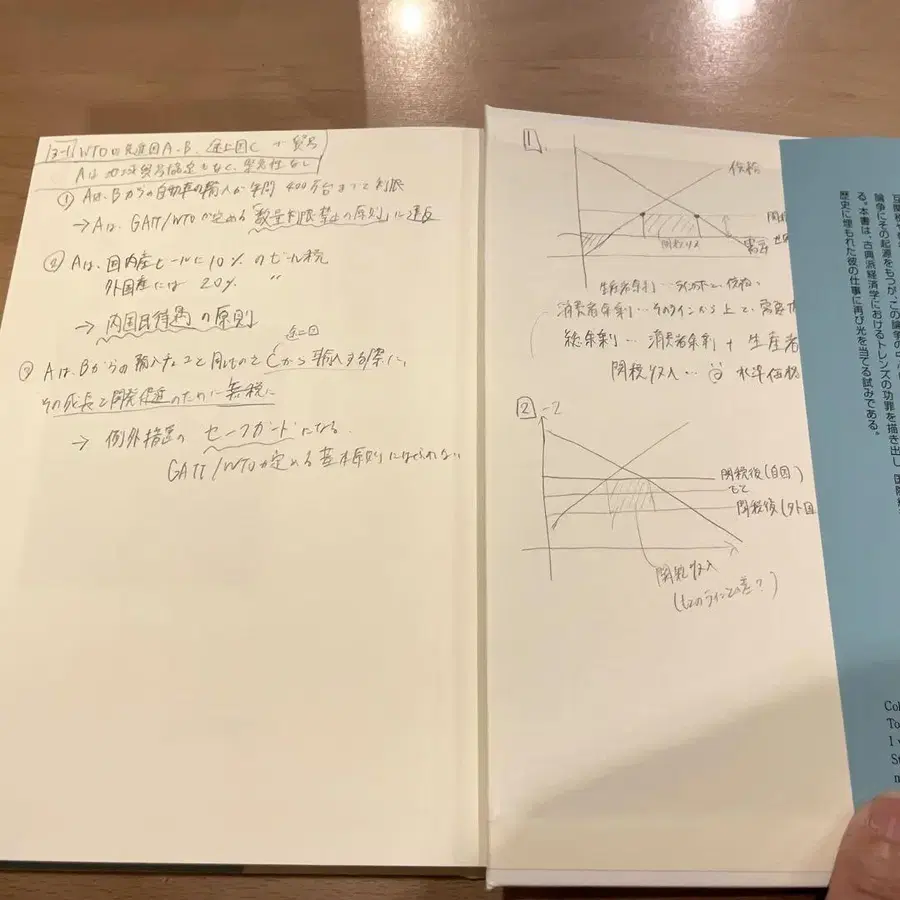 3-1 WTO の先進国A、B、途上国C 貿易
Aは 地域貿易協定もなく、緊急性なし
① Aは、Bからの自動車の輸入が年間 400万台までに制限
→ Aは、GATT/WTOが定める「数量制限禁止の原則」に違反
② Aは、国内産ビールに10%のビール税
外国産には 20% 〃
→ 内国民待遇の原則
途上国
③ Aは、Bからの輸入 Cから輸入する際に、
その成長と開発促進のために無税に
→ 例外措置の セーフガードになる
GATT/WTOが定める基本原則に
1.
価格
関税
需要
関税収入
生産者余剰… 価格
消費者余剰…そのラインから上で、需要
総余剰… 消費者余剰 + 生産者
関税収入… 水準価格
2 -2
関税後(自国)
もと
関税後(外国
関税収入
(もとのラインとの差?)
互関税や
論争にその起源をもつが、この論争の中
る。本書は、古典派経済学におけるトレンズの功罪を描き出し、国際
歴史に埋もれた彼の仕事に再び光を当てる試みである。
Col
To